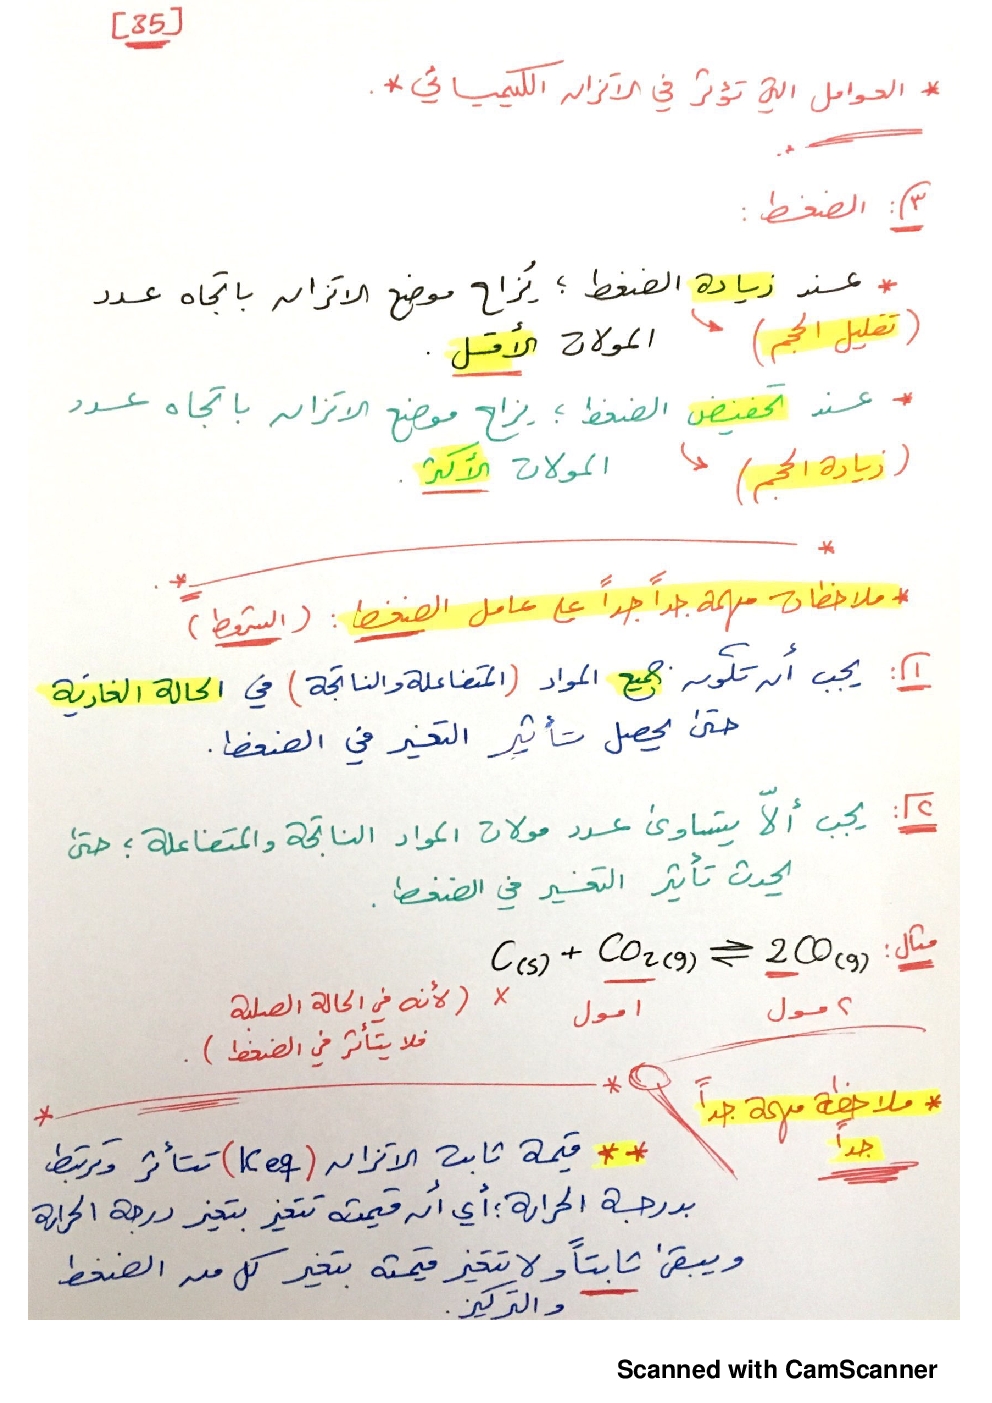 [35]
* العوامل التي تؤثر في الاتزان الكيميائي *.
٣: الضغط :
* عند زيادة الضغط ؛ يُزاح موضع الاتزان باتجاه عدد
(تقليل الحجم) المولات الأقل .
* عند تخفيض الضغط ؛ يزاح موضع الاتزان باتجاه عدد
(زيادة الحجم) المولات الأكثر .
* ملاحظات مهمة جداً جداً على عامل الضغط : (الشروط)
١: يجب أن تكون جميع المواد (المتفاعلة والناتجة) في الحالة الغازية
حتى يحصل تأثير التغير في الضغط .
٢: يجب ألّا يتساوى عدد مولات المواد الناتجة والمتفاعلة ؛ حتى
يحدث تأثير التغير في الضغط .
مثال: C(s) + CO2(g) ⇌ 2CO(g)
٢ مول ١ مول × (لأنه في الحالة الصلبة
فلا يتأثر في الضغط) .
* ملاحظة مهمة جداً
جداً
** قيمة ثابت الاتزان (Keq) تتأثر وترتبط
بدرجة الحرارة ؛ أي أن قيمته تتغير بتغير درجة الحرارة
ويبقى ثابتاً ولا تتغير قيمته بتغير كل من الضغط
والتركيز .
Scanned with CamScanner